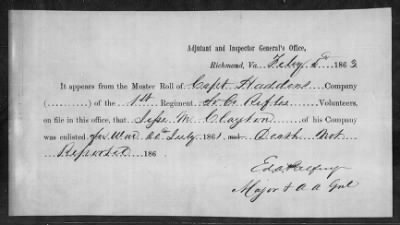 Adjutant and Inspector General's Office,
Richmond, Va. Feby 5th 1863
It appears from the Muster Roll of Capt. Haddens Company
(..........) of the 1st Regiment S. C. Rifles Volunteers,
on file in this office, that M. Clayton of his Company
was enlisted for War 20th July 1861 and Death Not
Reported 186
Major & A A Genl